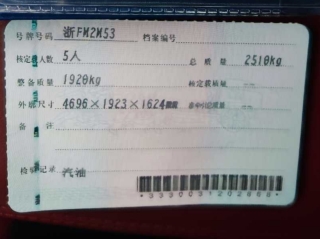 号牌号码 浙FM2M53 档案编号
核定载人数 5人 总质量 2510kg
整备质量 1920kg 核定载质量 --
外廓尺寸 4696×1923×1624 --
备注
检验记录 汽油